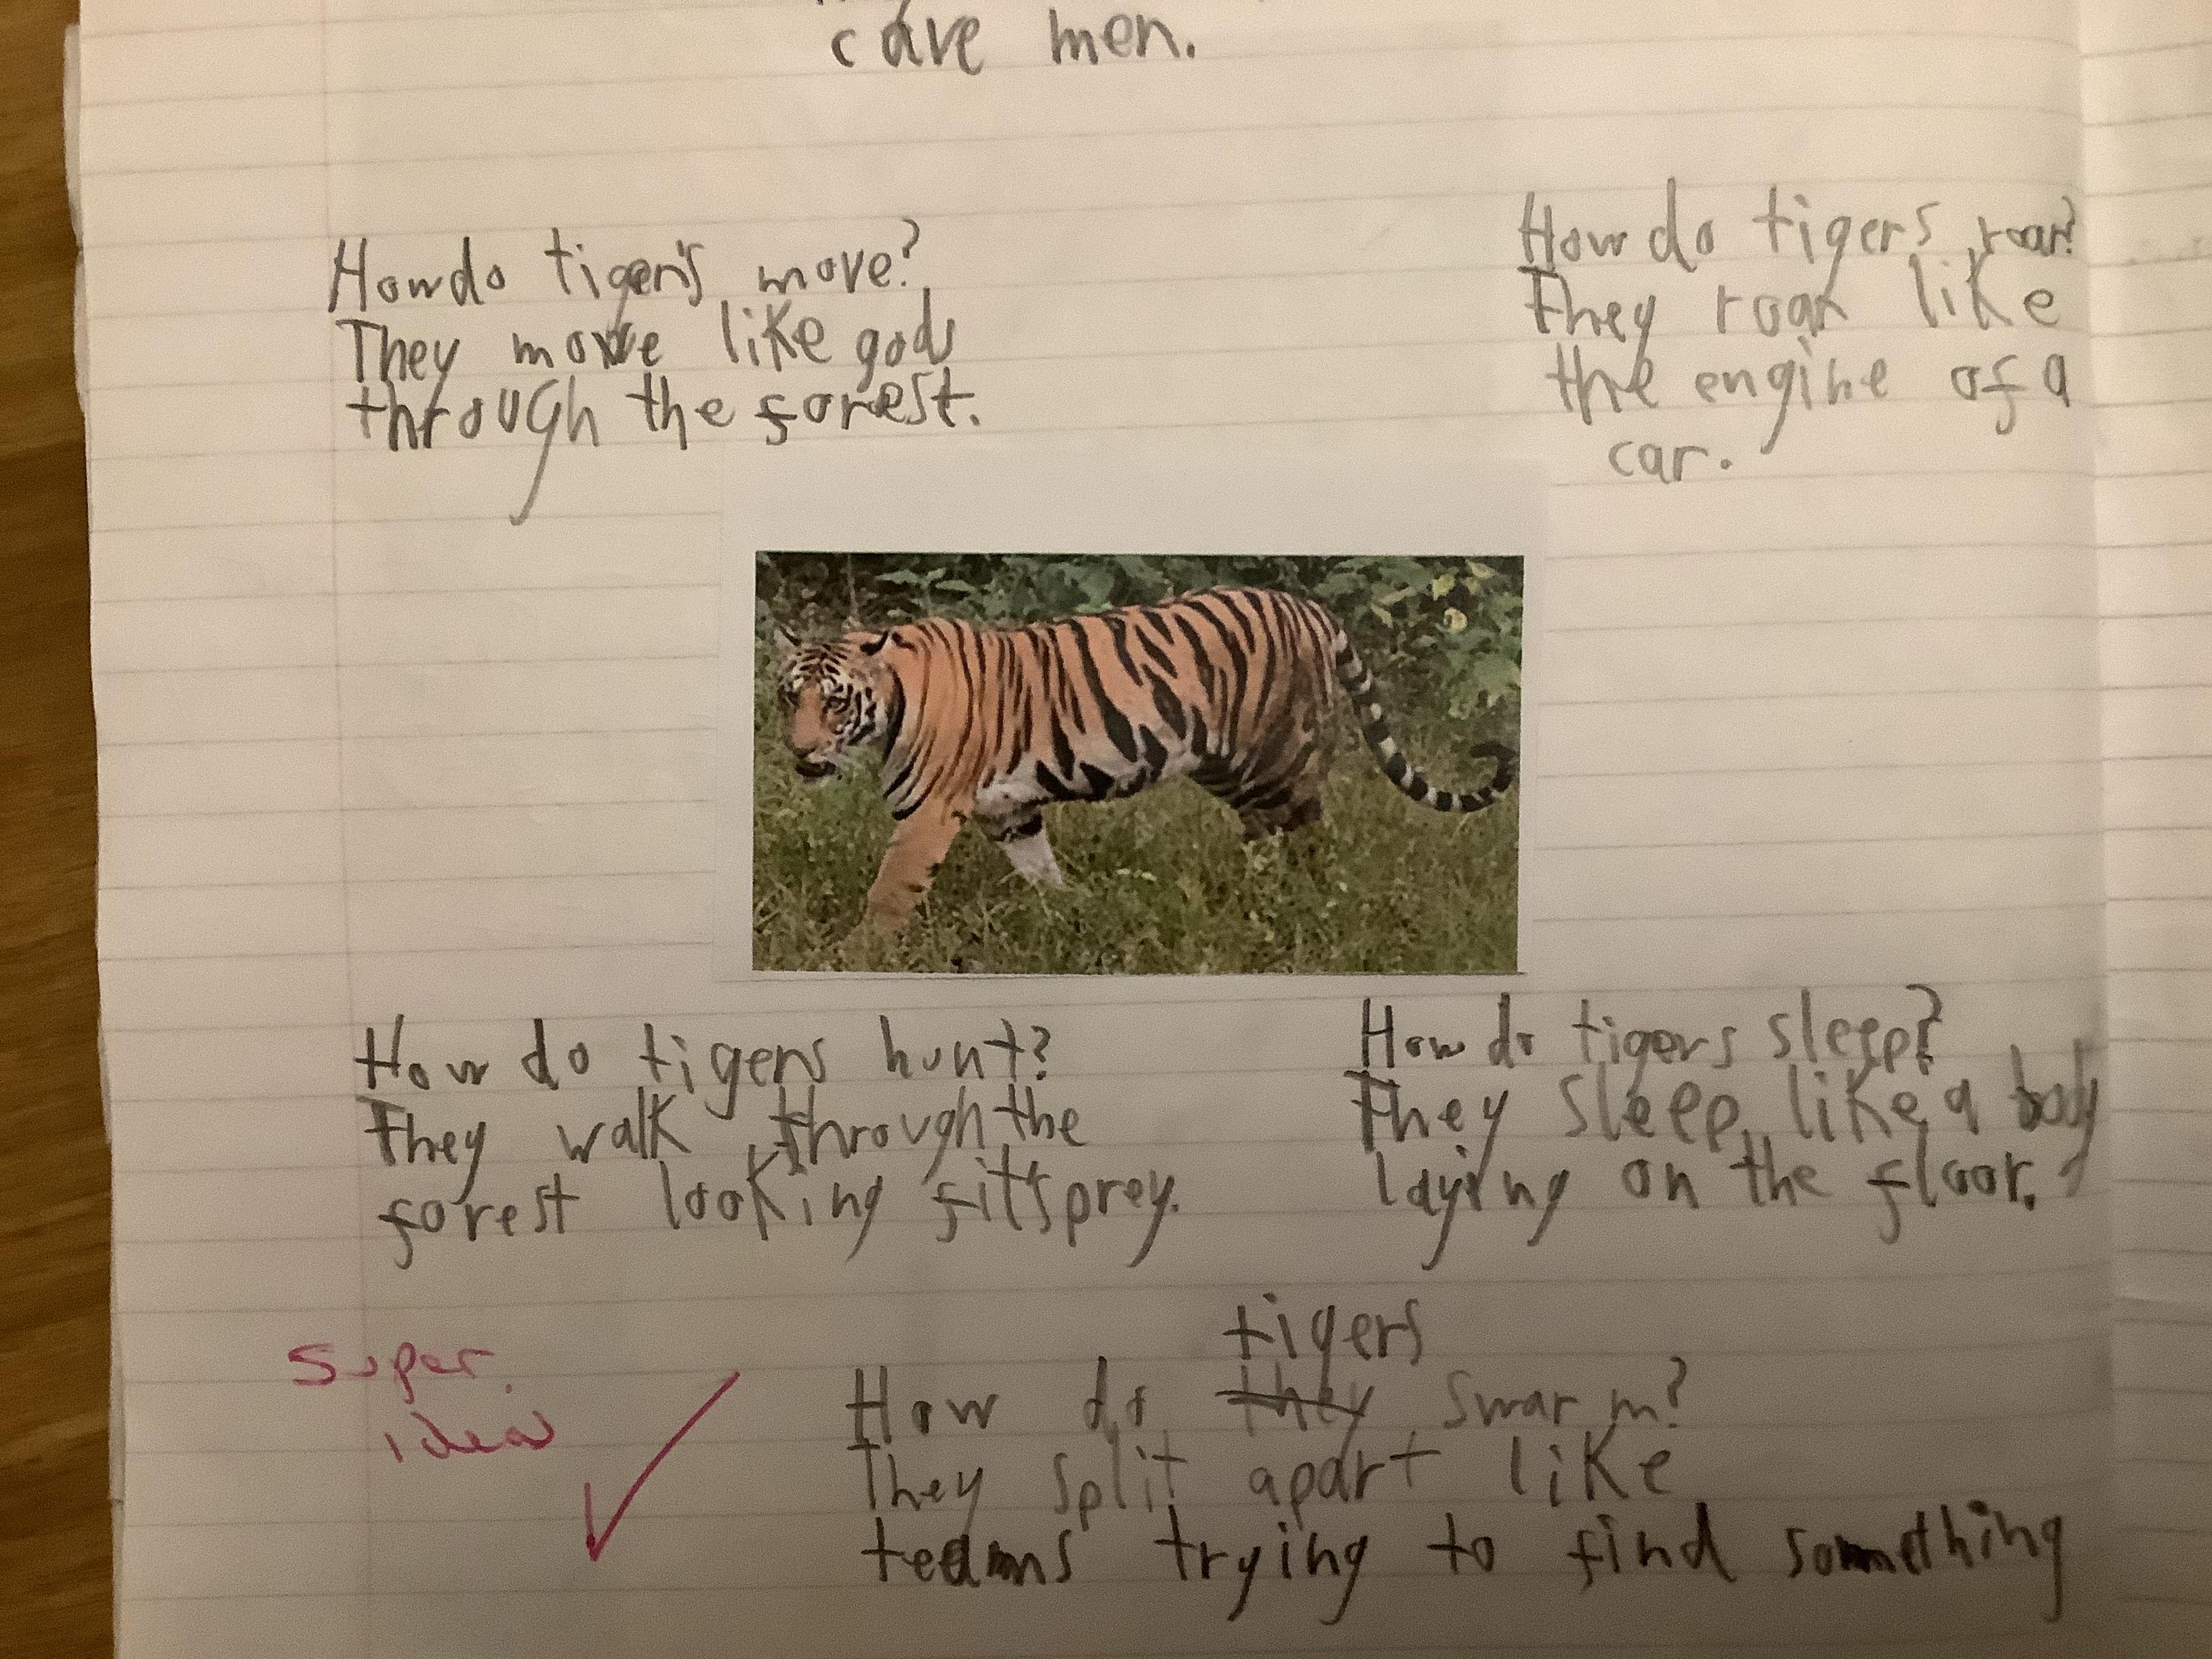 cave men.
How do tigers move?
They move like gods
through the forest.
How do tigers roar?
They roar like
the engine of a
car.
How do tigers hunt?
They walk through the
forest looking fit's prey.
How do tigers sleep?
They sleep like a body
laying on the floor.
super
idea
tigers
How do they swarm?
They split apart like
teams trying to find something